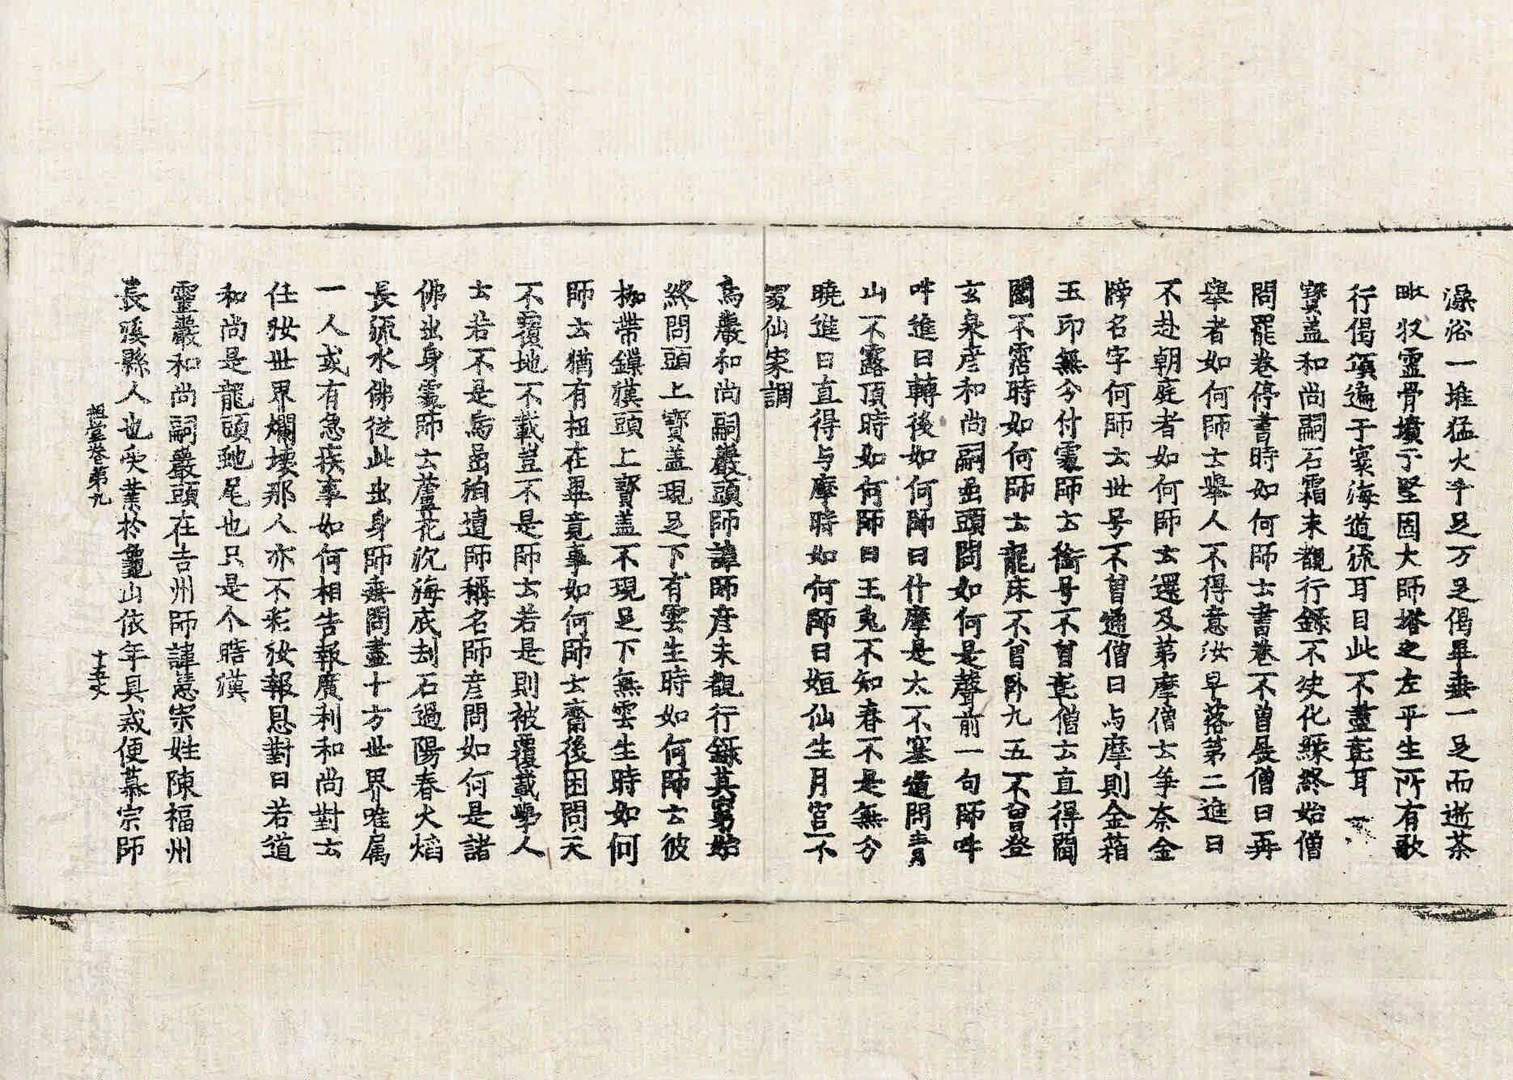 澡浴一堆猛火千足万足偈畢垂一足而逝茶
毗収靈骨墳于堅固大師塔之左平生所有歌
行偈頌遍于寰海道流耳目此不盡彰耳
寶盖和尚嗣石霜未覩行錄不決化緣終始僧
問罷卷停書時如何師云書卷不曾展僧曰再
舉者如何師云舉人不得意汝早落第二進曰
不赴朝庭者如何師云還及第摩僧云爭奈金
牓名字何師云世号不曾通僧曰与摩則金箱
玉印無分付處師云衘号不曾彰僧云直得閫
閣不窓時如何師云龍床不曾卧九五不曾登
玄泉彦和尚嗣嵒頭問如何是聲前一句師吽
吽進曰轉後如何師曰什摩是太不塞道問青
山不露頂時如何師曰玉兎不知春不是無分
曉進曰直得与摩時如何師曰姮仙生月宮不
翠仙家調
烏巖和尚嗣巖頭師諱師彦未覩行錄莫窮始
終問頭上寶盖現足下有雲生時如何師云彼
枷帶鏁漢頭上寶盖不現足下無雲生時如何
師云猶有杻在畢竟事如何師云齋後困問天
不覆地不載豈不是師云若是則被覆載學人
云若不是烏嵒洎遭師稱名師彦問如何是諸
佛出身處師云蘆花沉海底刦石過陽春火焰
長流水佛從此出身師垂問盡十方世界唯属
一人或有急疾事如何相告報廣利和尚對云
任汝世界爛壞那人亦不彩汝報恩對曰若道
和尚是龍頭虵尾也只是个瞎漢
靈巖和尚嗣巖頭在吉州師諱慧宗姓陳福州
長溪縣人也受業於龜山依年具戒便慕宗師
祖堂卷第九
十五丈